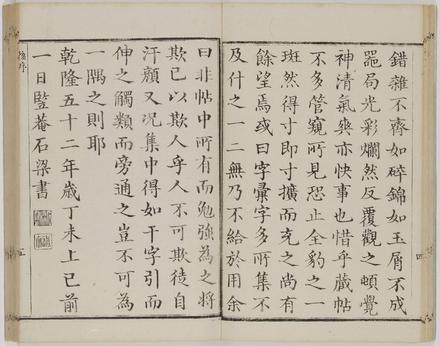 錯雜不齊如碎錦如玉屑不成
噐局光彩爛然反覆觀之頓覺
神清氣爽亦快事也惜乎藏帖
不多管窺所見恐止全豹之一
斑然得寸即寸擴而充之尚有
餘望焉或曰字彙字多所集不
及什之一二無乃不給於用余
曰非帖中所有而勉強為之將
欺已以欺人乎人不可欺徒自
汗顏又况集中得如干字引而
伸之觸類而旁通之豈不可為
一隅之則耶
乾隆五十二年歲丁未上巳前
一日豎菴石梁書